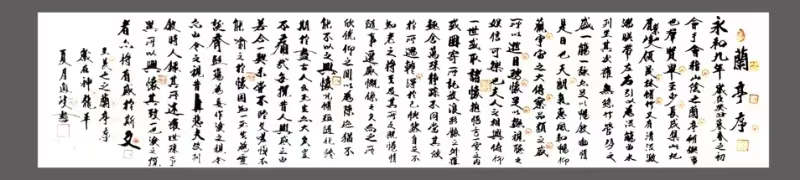 蘭亭序
永和九年歲在癸丑暮春之初
會于會稽山陰之蘭亭脩稧事
也群賢畢至少長咸集此地
有崇山峻領茂林脩竹又有清流激
湍暎帶左右引以為流觴曲水
列坐其次雖無絲竹管弦之
盛一觴一詠亦足以暢敘幽情
是日也天朗氣清惠風和暢仰
觀宇宙之大俯察品類之盛
所以遊目騁懷足以極視聽之
娛信可樂也夫人之相與俯仰
一世或取諸懷抱悟言一室之內
或因寄所託放浪形骸之外雖
趣舍萬殊靜躁不同當其欣
於所遇暫得於己快然自足不
知老之將至及其所之既惓情
隨事遷感慨係之矣向之所
欣俛仰之間以為陳迹猶不
能不以之興懷況脩短隨化終
期於盡古人云死生亦大矣豈
不痛哉每攬昔人興感之由
若合一契未嘗不臨文嗟悼不
能喻之於懷固知一死生為虛
誕齊彭殤為妄作後之視今
亦由今之視昔悲夫故列
敘時人錄其所述雖世殊事
異所以興懷其致一也後之攬
者亦將有感於斯文
王羲之之蘭亭序
歲在神龍年
夏月